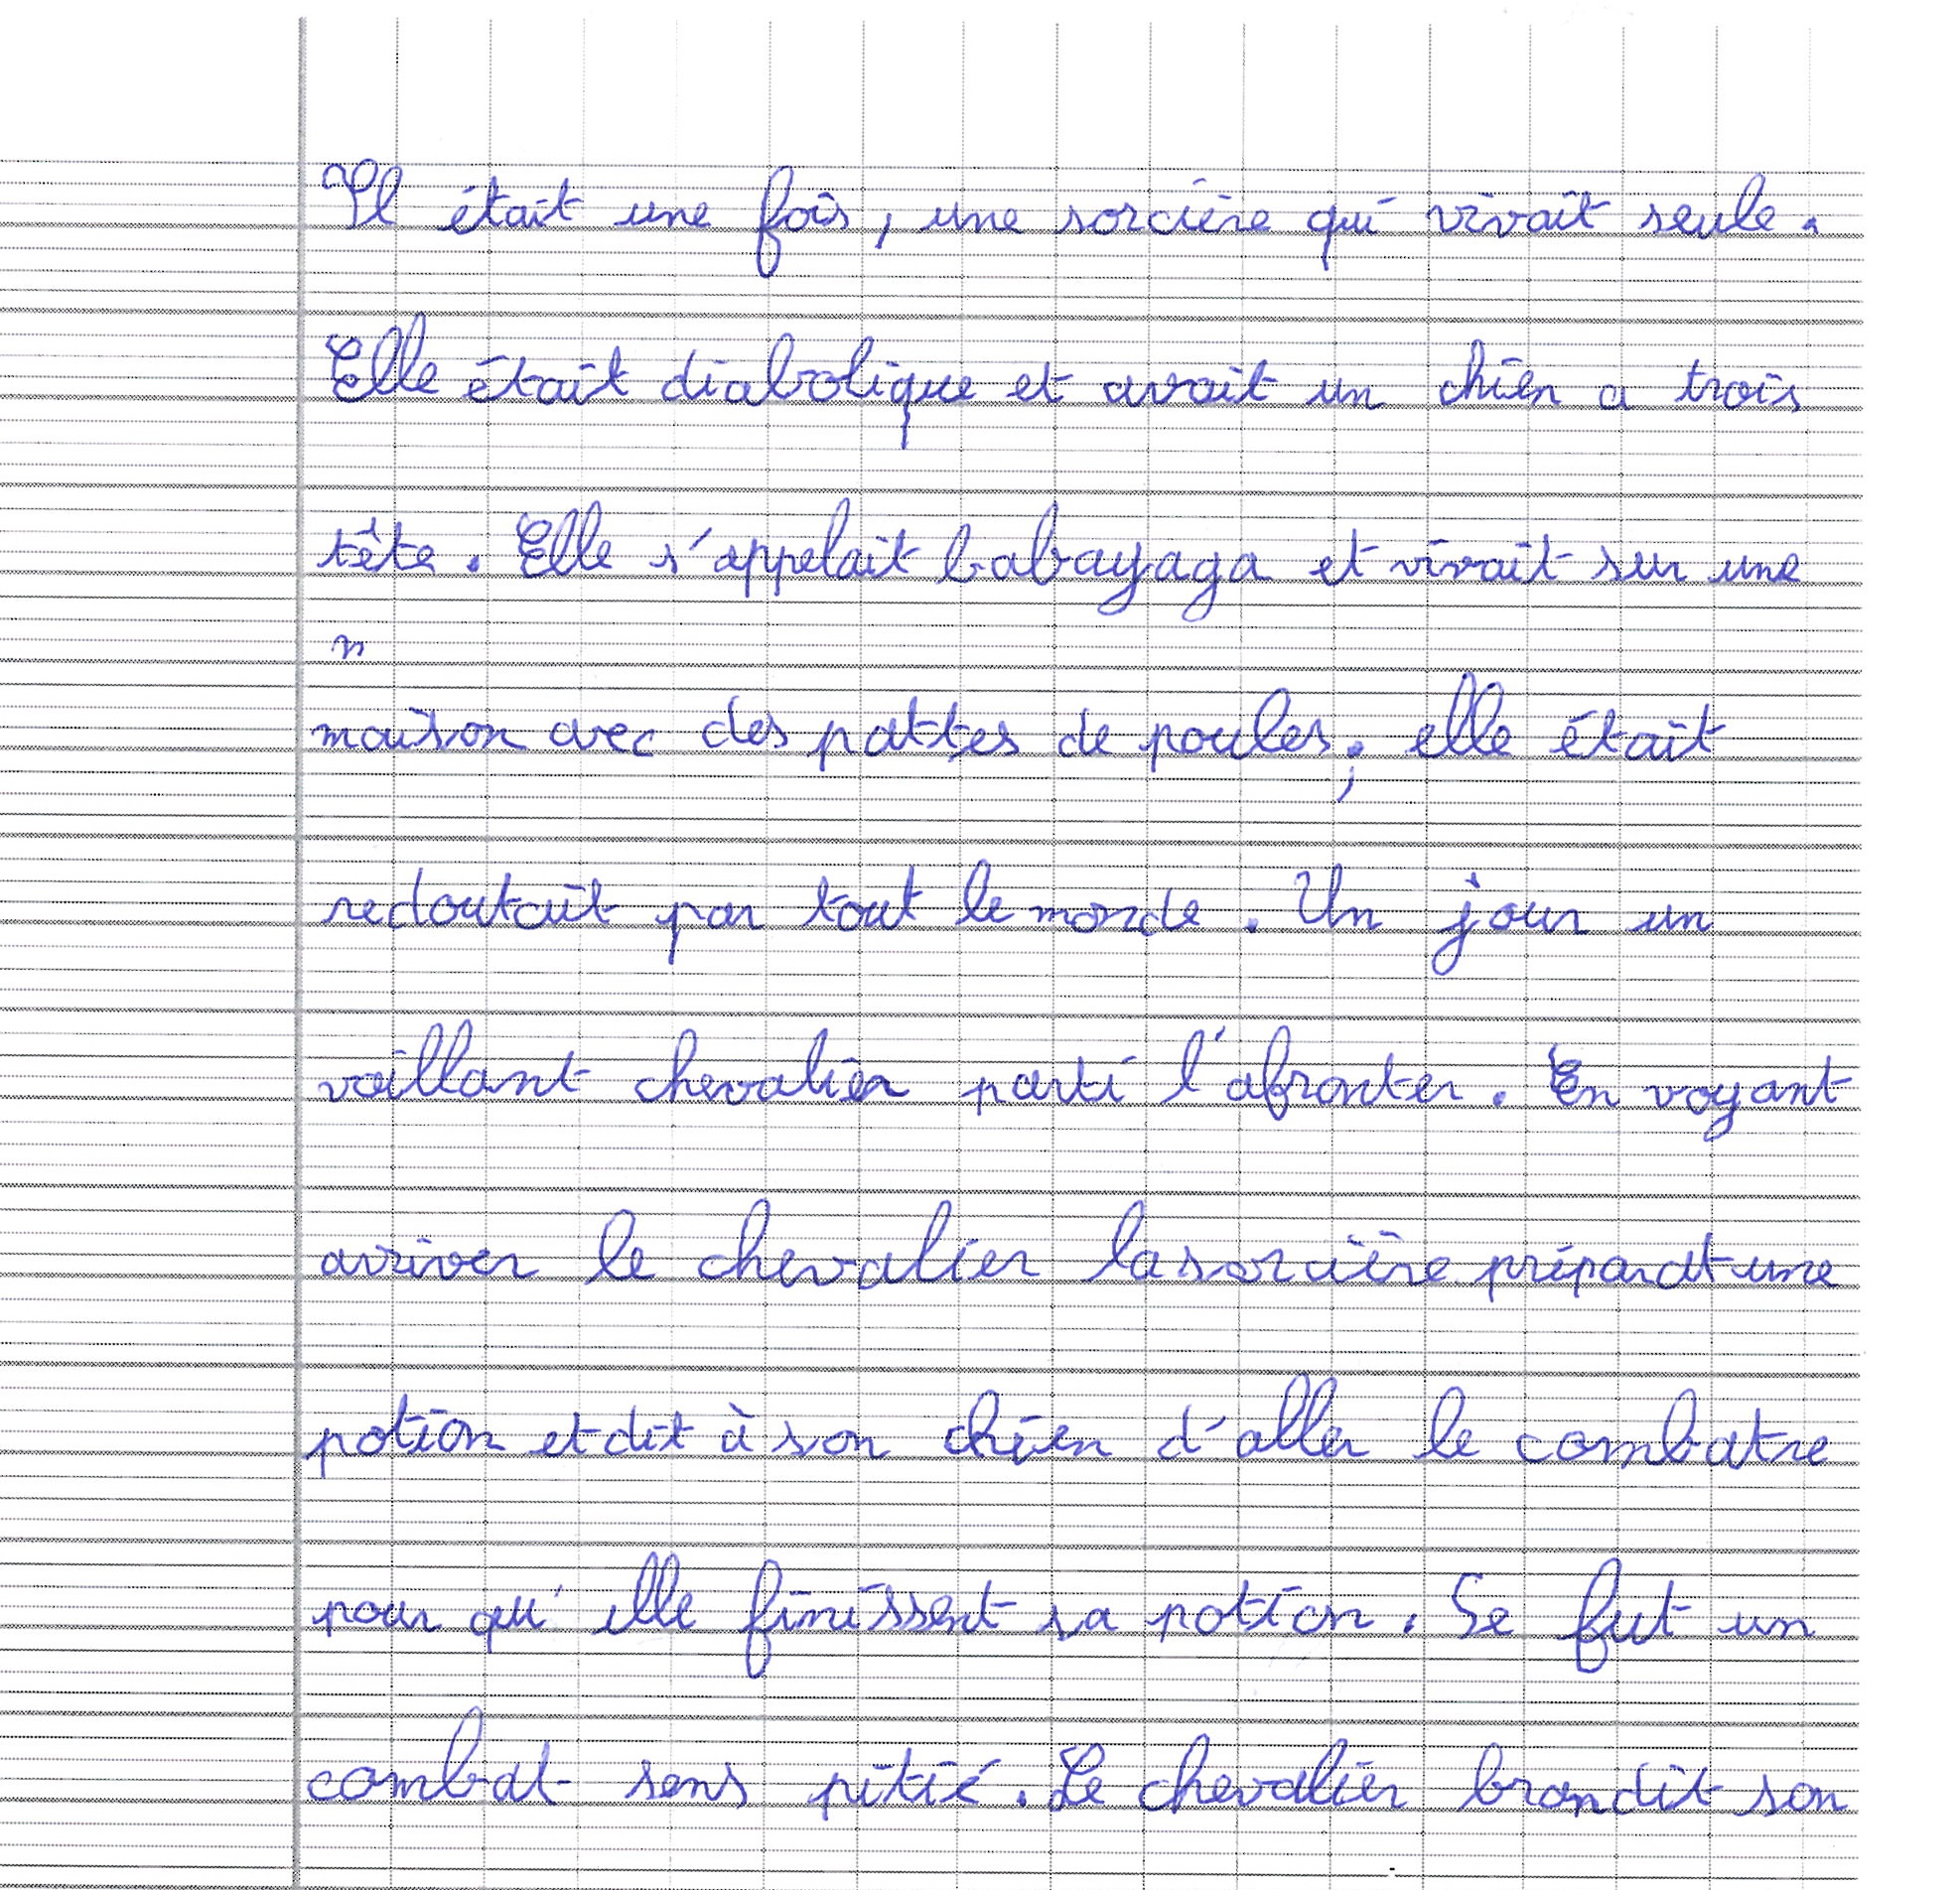 Il était une fois, une sorcière qui vivait seule.
Elle était diabolique et avait un chien a trois
tête. Elle s'appelait babayaga et vivait sur une
maison avec des pattes de poules; elle était
redoutait par tout le monde. Un jour un
vaillant chevalier parti l'afronter. En voyant
arriver le chevalier la sorcière préparat une
potion et dit à son chien d'aller le combatre
pour qu'elle finissent sa potion. Se fut un
combat sens pitié. Le chevalier brandit son